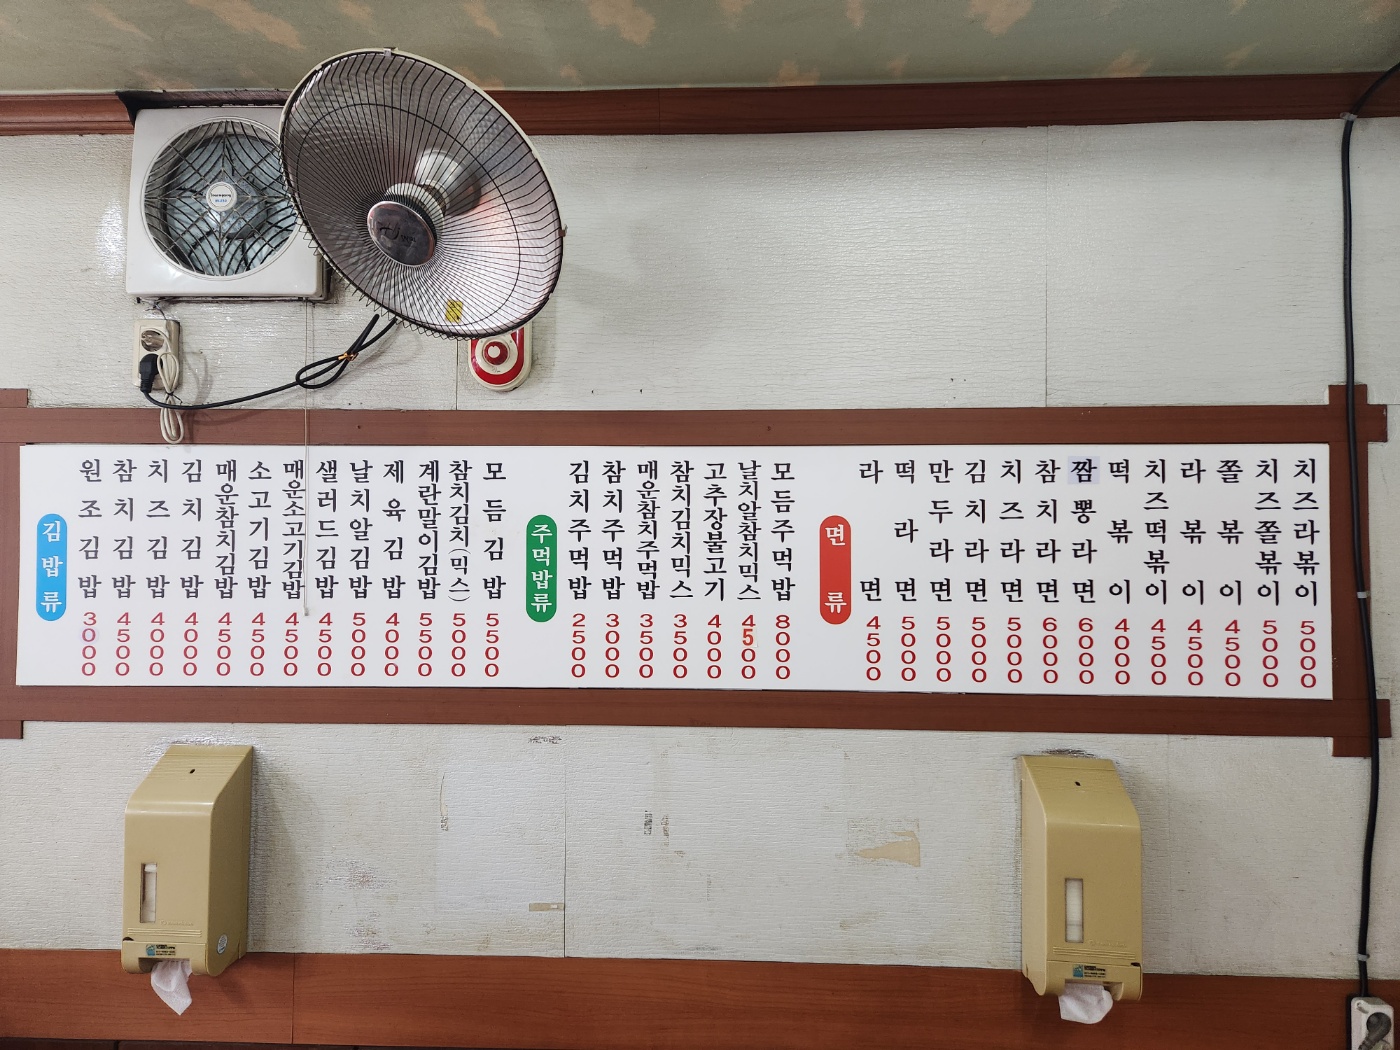 김밥류
원조김밥 3000
참치김밥 4500
치즈김밥 4000
김치김밥 4000
매운참치김밥 4500
소고기김밥 4500
매운소고기김밥 4500
샐러드김밥 4500
날치알김밥 5000
제육김밥 4000
계란말이김밥 5500
참치김치(믹스) 5000
모듬김밥 5500
주먹밥류
김치주먹밥 2500
참치주먹밥 3000
매운참치주먹밥 3500
참치김치믹스 3500
고추장불고기 4000
날치알참치믹스 4500
모듬주먹밥 8000
면류
라면 4500
떡라면 5000
만두라면 5000
김치라면 5000
치즈라면 5000
참치라면 6000
짬뽕라면 6000
떡볶이 4000
치즈떡볶이 4500
라볶이 4500
쫄볶이 4500
치즈쫄볶이 5000
치즈라볶이 5000